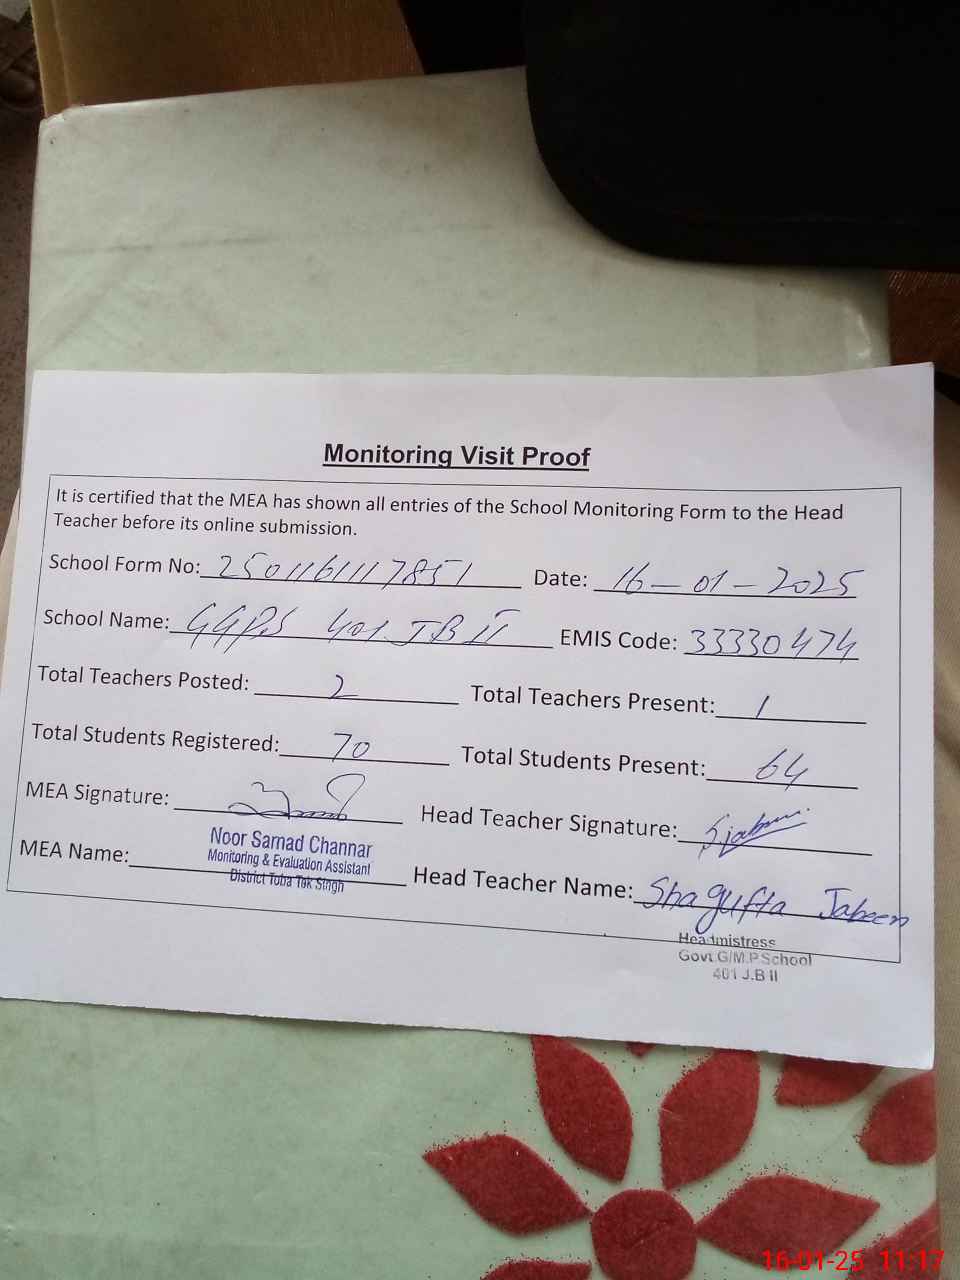 Monitoring Visit Proof
It is certified that the MEA has shown all entries of the School Monitoring Form to the Head
Teacher before its online submission.
School Form No: 2501161117851 Date: 16-01-2025
School Name: GGPS 401 JB II EMIS Code: 33330474
Total Teachers Posted: 2 Total Teachers Present: 1
Total Students Registered: 70 Total Students Present: 64
MEA Signature: Head Teacher Signature: Sjabeen
Noor Samad Channar
Monitoring & Evaluation Assistant
District Toba Tek Singh
MEA Name: Head Teacher Name: Shagufta Jabeen
Headmistress
Govt.G/M.P.School
401 J.B II
16-01-25 11:17